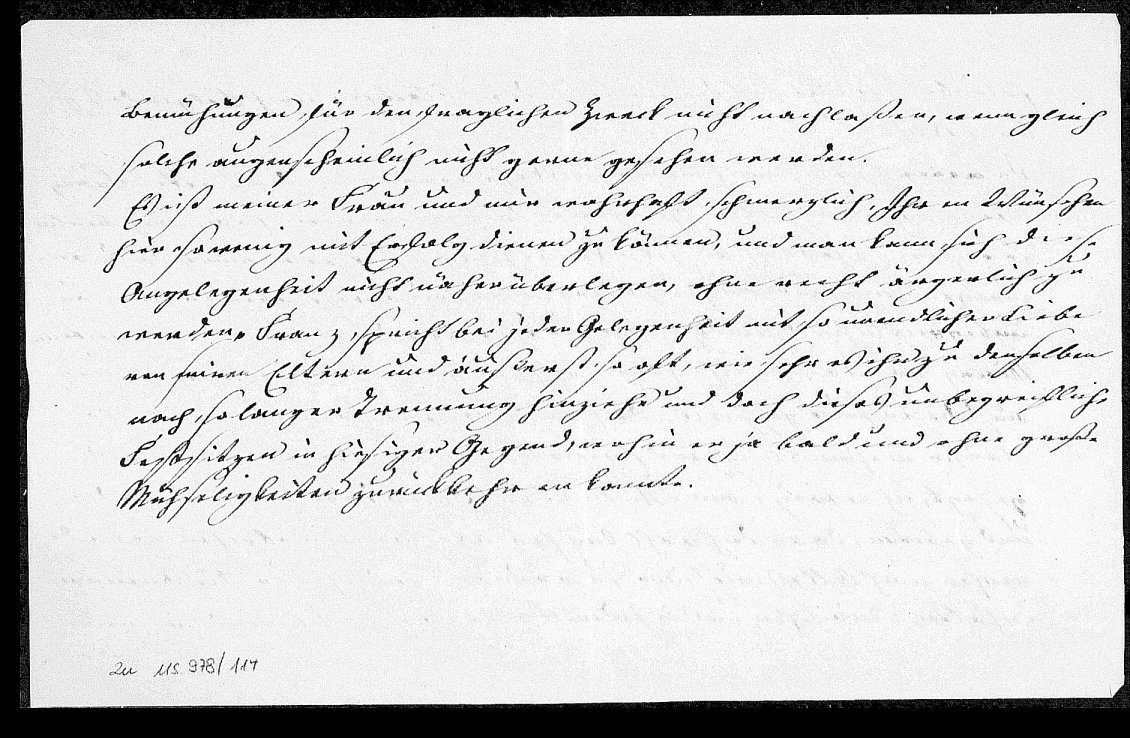 Bemühungen für den fraglichen Zweck nicht nachlaßen, wenngleich
solche augenscheinlich nicht gerne gesehen werden.
Es ist meiner Frau und mir wahrhaft schmerzlich, Ihren Wünschen
hier so wenig mit Erfolg dienen zu können, und man kann sich diese
Angelegenheit nicht näher überlegen, ohne recht ärgerlich zu
werden. Franz spricht bei jeder Gelegenheit mit so unendlicher Liebe
von seinen Eltern und äußerst so oft, wie sehr es ihn zu denselben
nach so langer Trennung hinziehe und doch dieses unbegreifliche
Festsitzen in hiesiger Gegend, wohin er ja bald und ohne große
Mühseligkeiten zurückkehren konnte.
zu MS 978/117